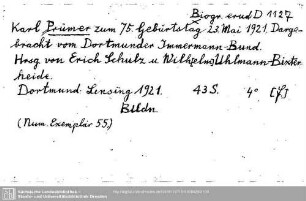 Biogr. erud. D 1127
Karl Prümer zum 75. Geburtstag 23. Mai 1921. Darge-
bracht vom Dortmunder Immermann-Bund.
Hrsg von Erich Schulz u. Wilh[elm] Uhlmann-Bixter-
heide.
Dortmund: Lensing 1921. 43 S. 4° [f]
Bildn
(Num. Exemplar 55.)
Sächsische Landesbibliothek -
Staats- und Universitätsbibliothek Dresden